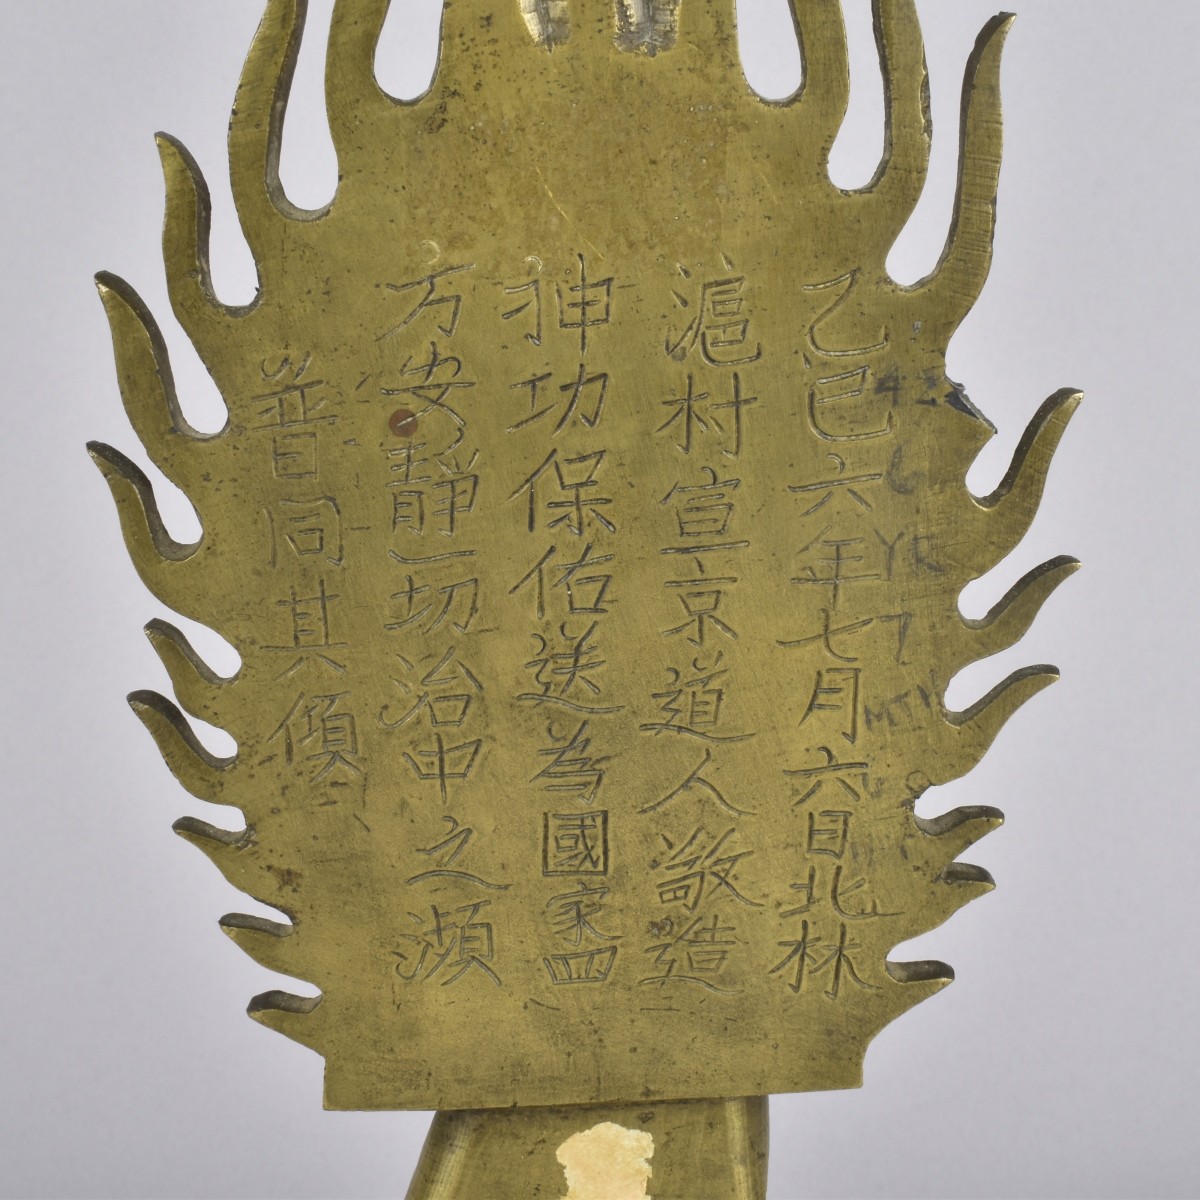 乙巳六年七月六日北林
滬村宣京道人敬造
抻功保佑送為國家四
方安靜一切治中之瀕
普同其傾
42
6
YR
7
MTH